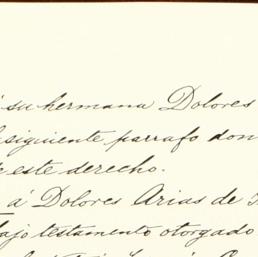 su hermana Dolores
siguiente parrafo don
este derecho.
á Dolores Arias de
bajo testamento otorgado